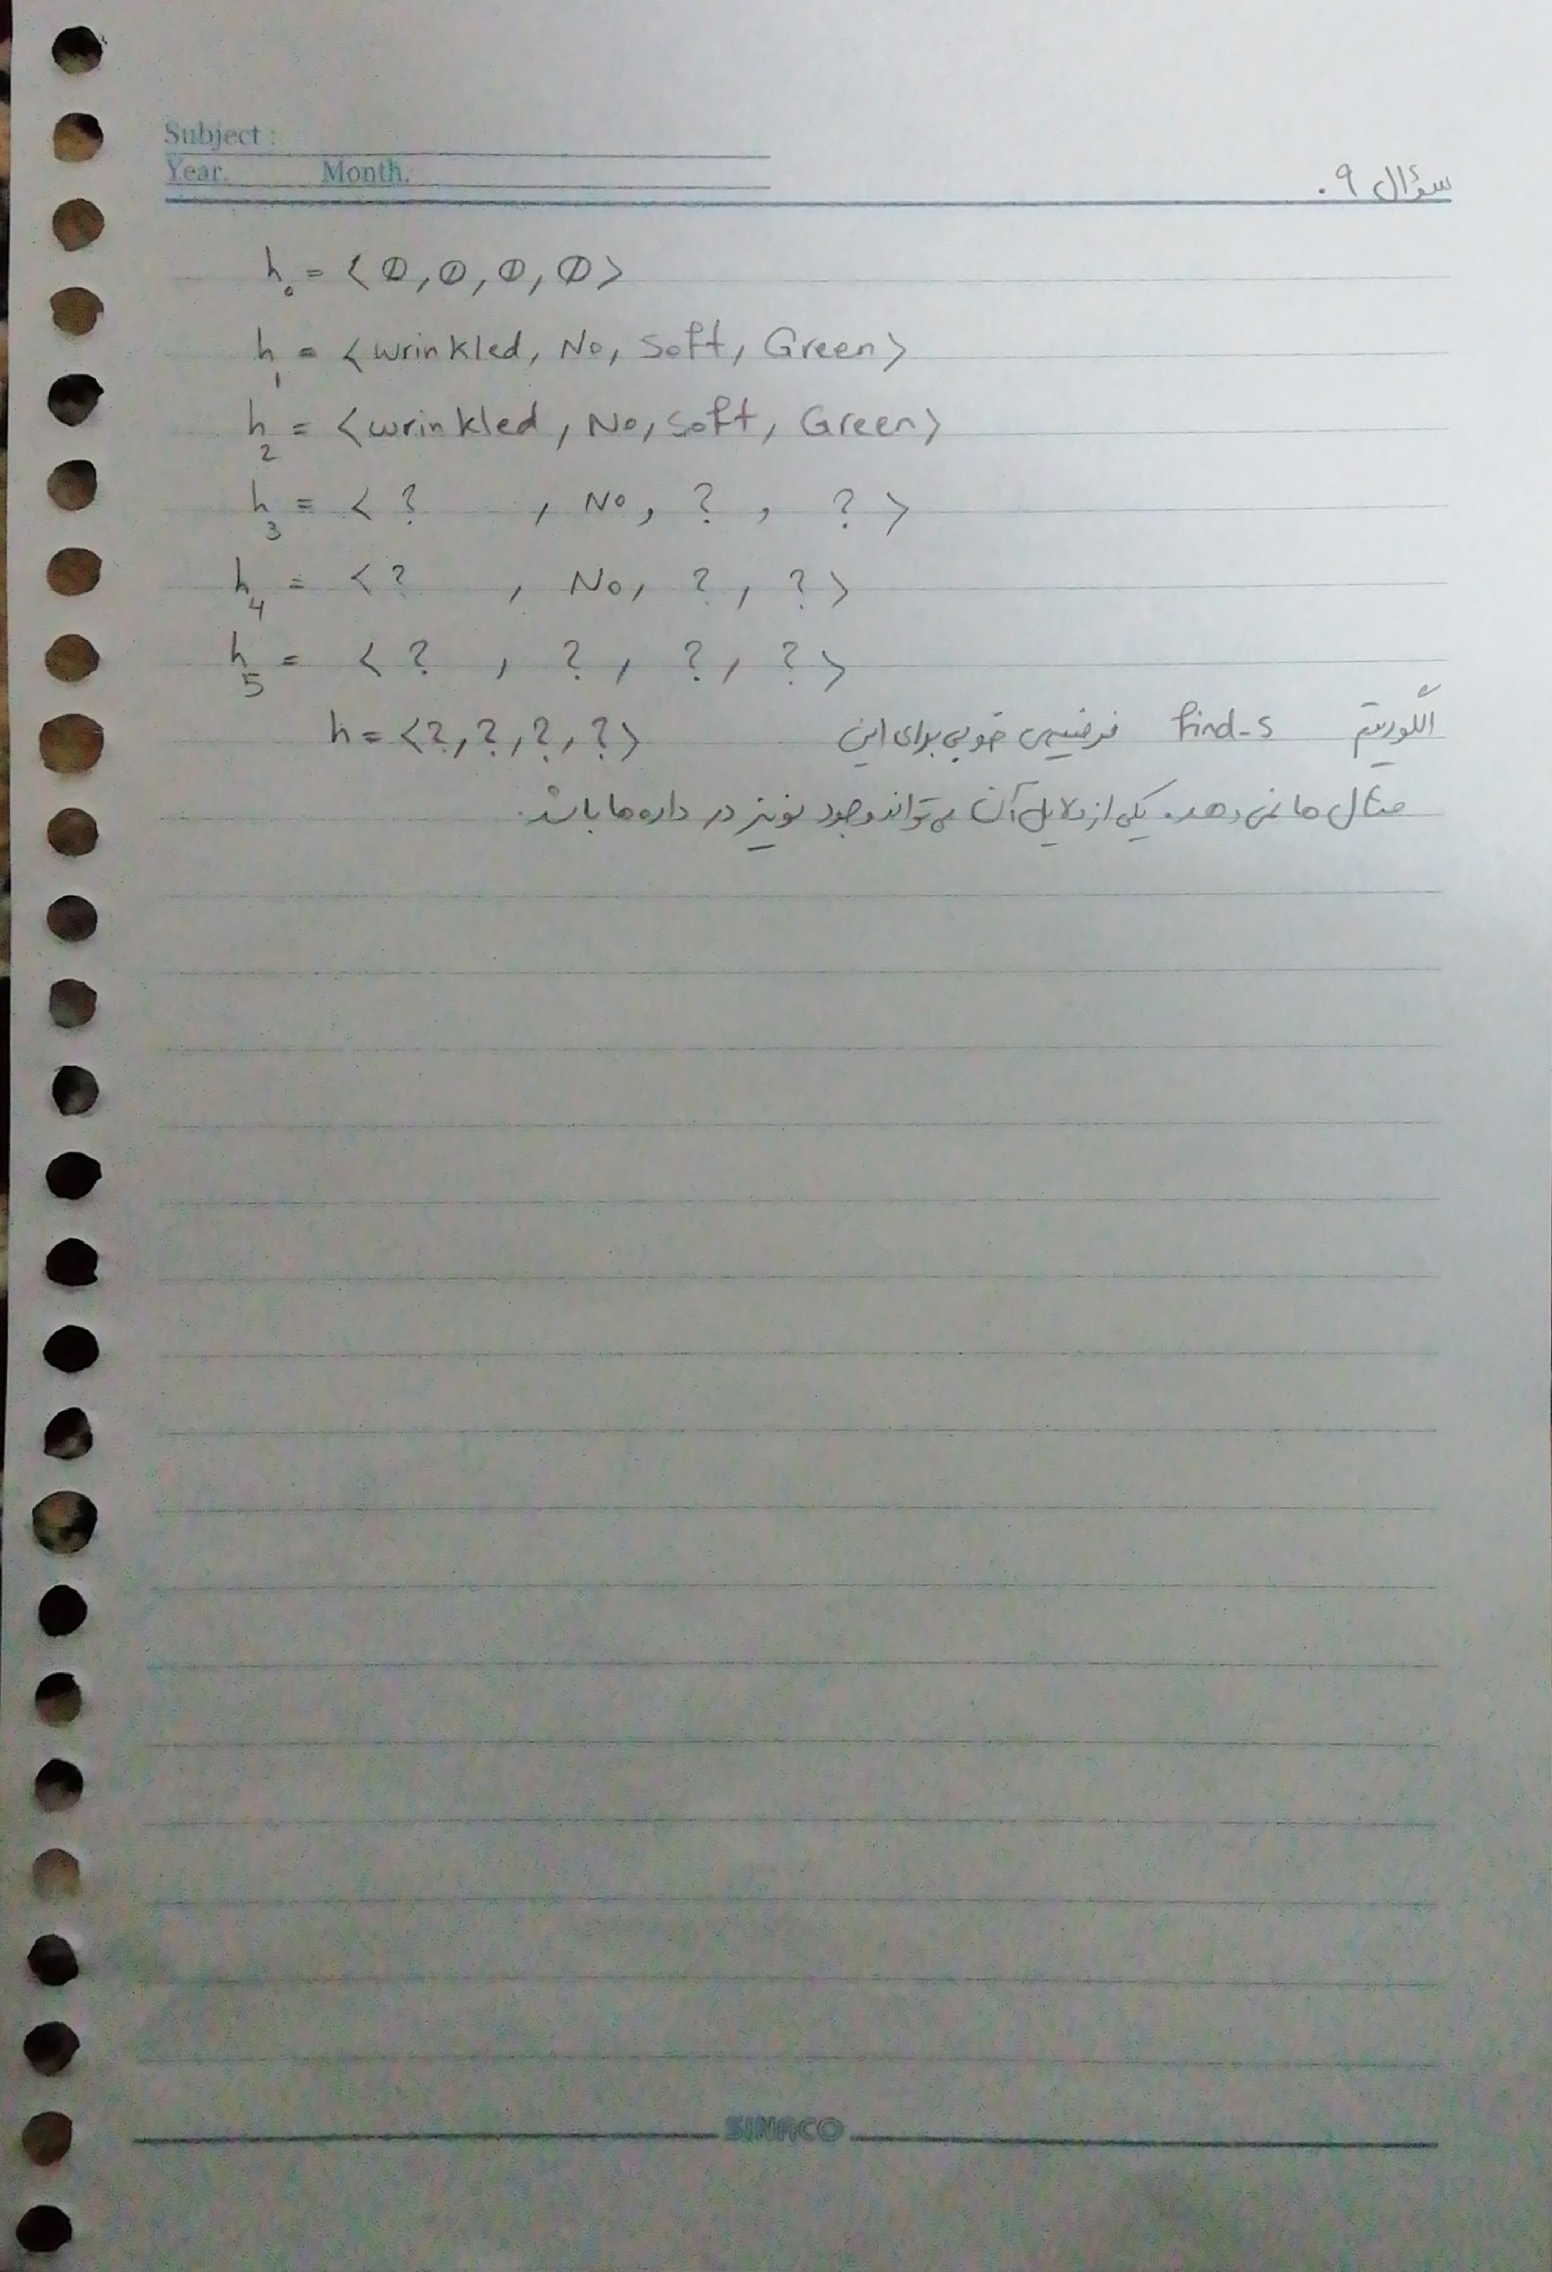 Subject :
Year. Month.
سؤال ۹.
h₀ = <∅, ∅, ∅, ∅>
h₁ = <wrinkled, No, Soft, Green>
h₂ = <wrinkled, No, Soft, Green>
h₃ = <?, No, ?, ?>
h₄ = <?, No, ?, ?>
h₅ = <?, ?, ?, ?>
الگوریتم find-s فرضیه‌ی خوبی برای این h = <?, ?, ?, ?>
مثال ها نمی دهد. یکی از دلایل آن می تواند وجود نویز در داده ها باشد.
SINACO